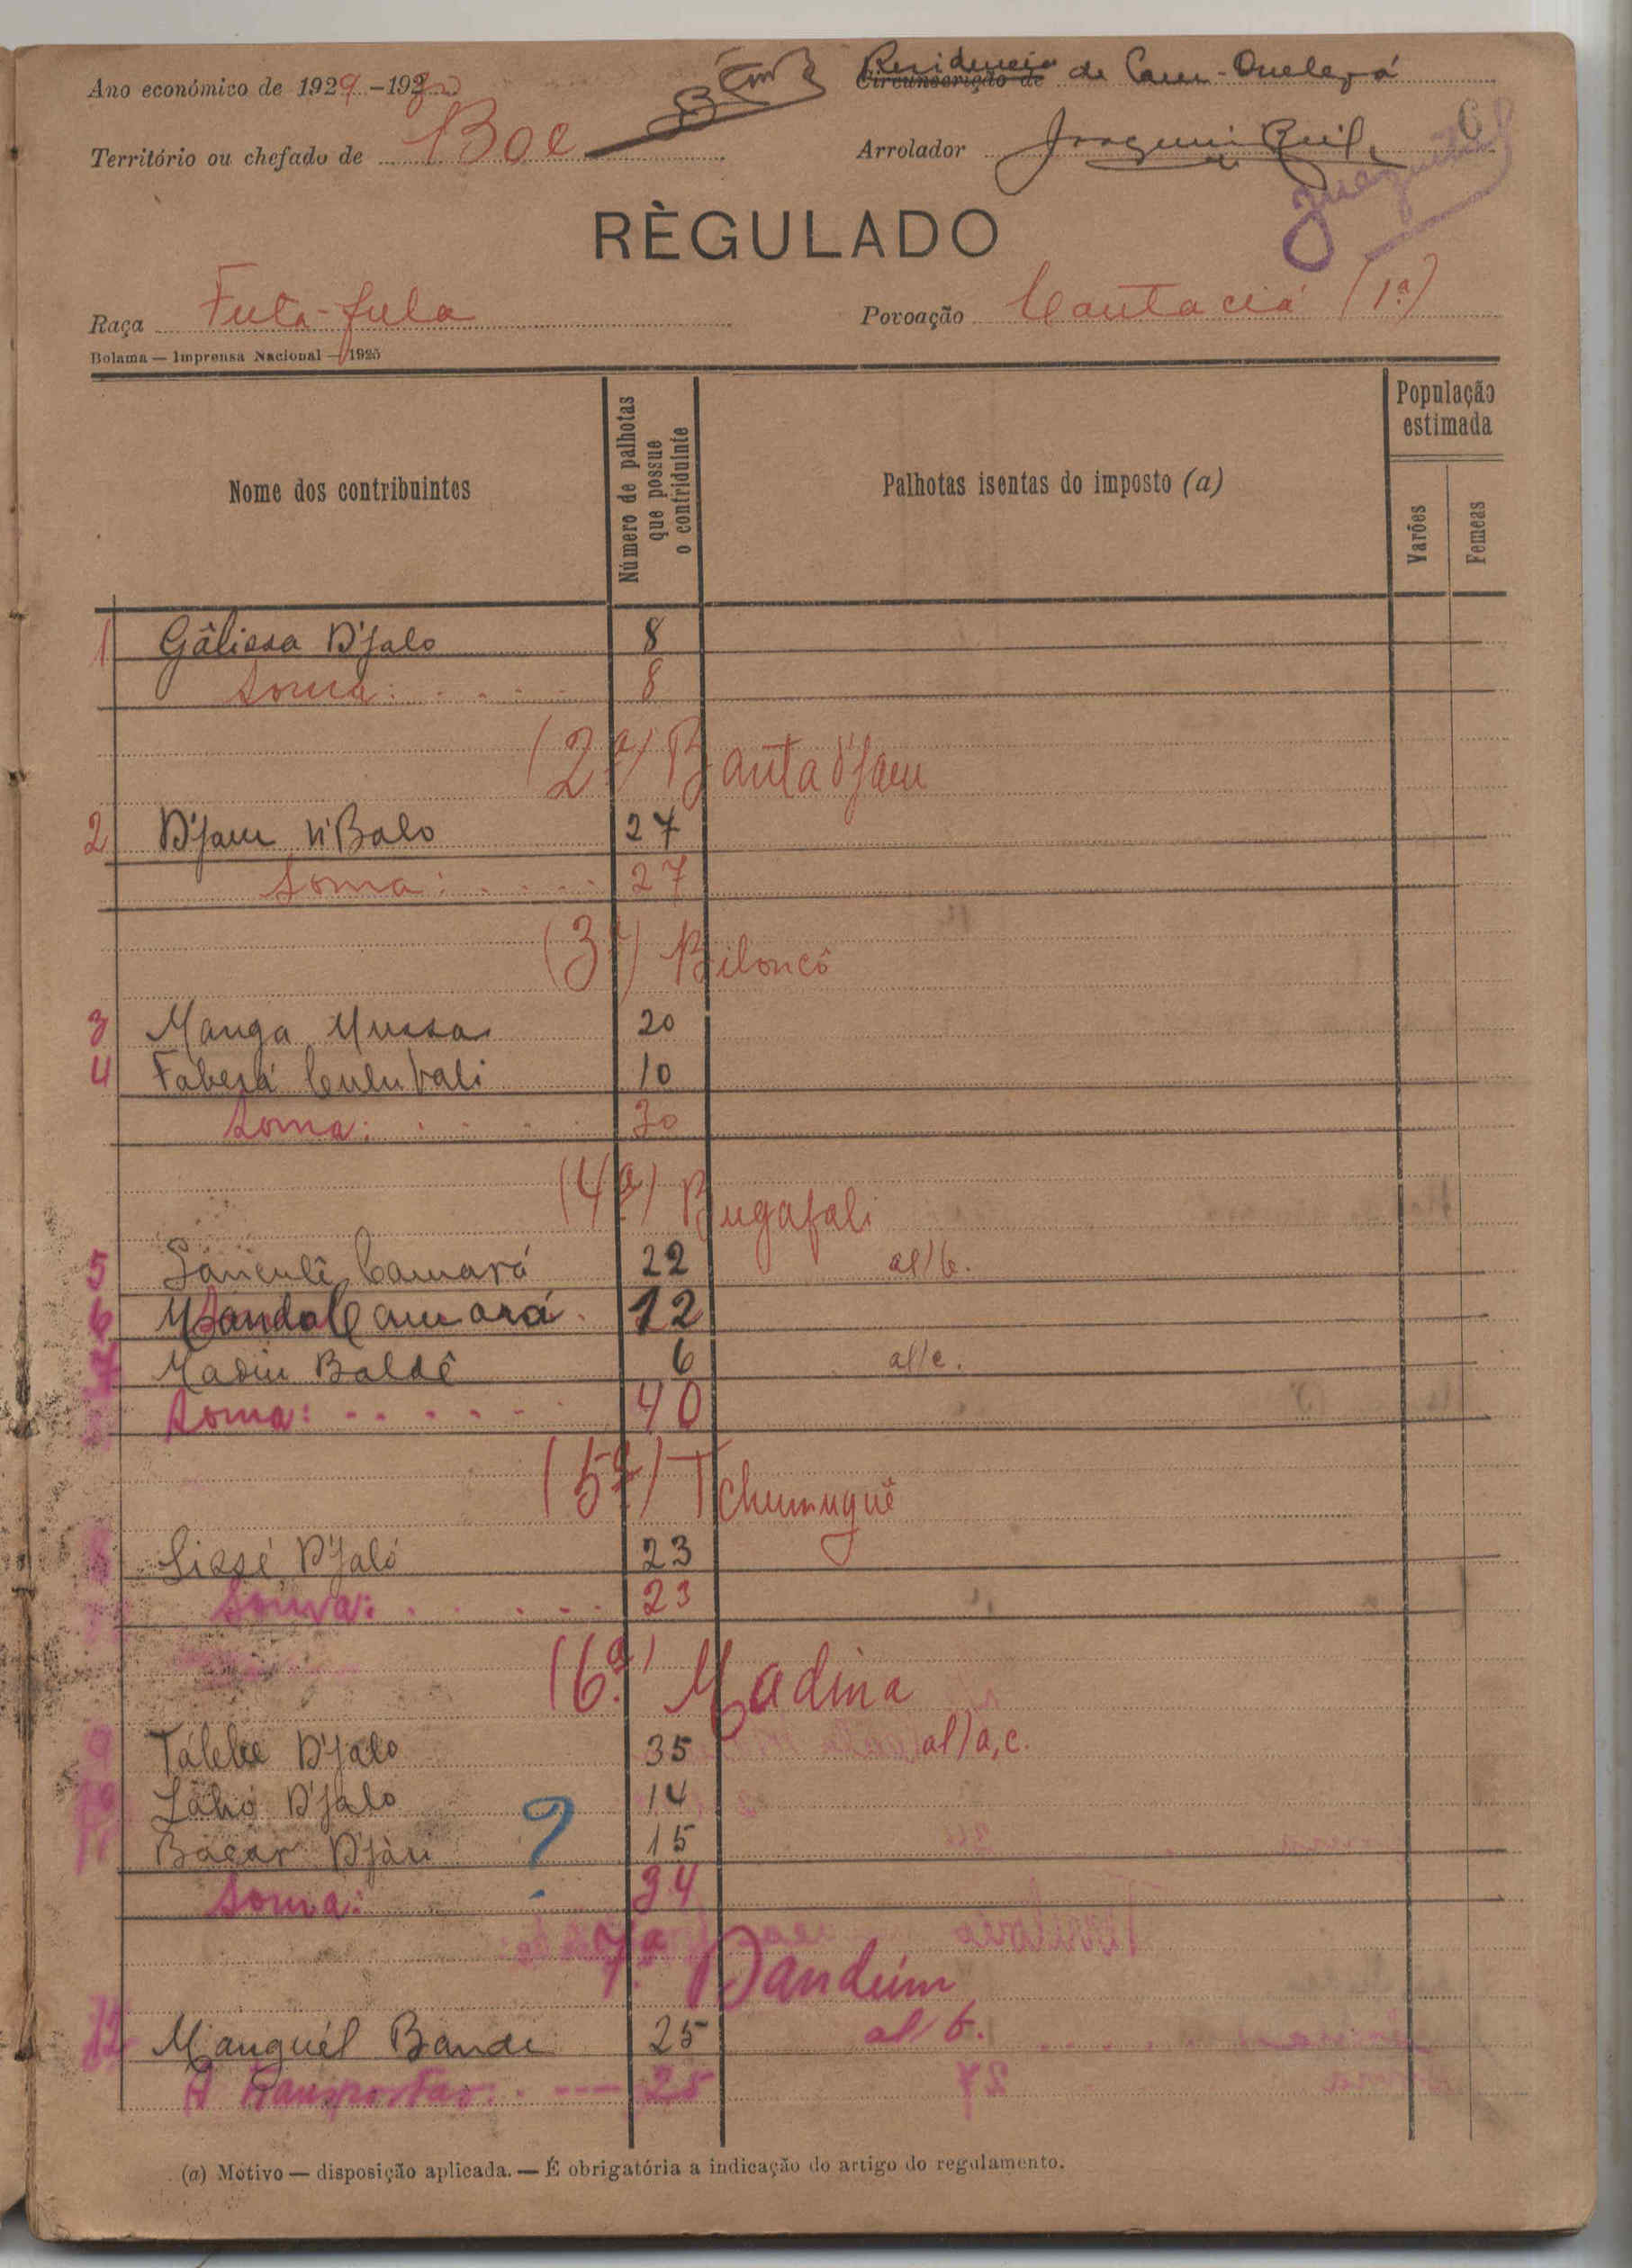 Ano económico de 1929-1930
Residencia de Cam-Quelezá
Circunscrição de
Território ou chefado de Boé
Arrolador Joaquim
6
RÈGULADO
Raça Futa-fula
Povoação Cantaciá (1ª)
Bolama — Imprensa Nacional — 1925
Nome dos contribuintes
Número de palhotas que possue o contriduinte
Palhotas isentas do imposto (a)
População estimada
Varões
Femeas
1 Gâlissa D'jalo 8
Soma: 8
(2ª) Banta D'jam
2 D'jam N'Balo 27
Soma: 27
(3ª) Biloncô
3 Manga Mussa 20
4 Faberá Culubali 10
Soma: 30
(4ª) Bugafali
5 Sanculê Camará 22 al/b.
6 Camará 12
7 Madiu Baldê 6 al/c.
Soma: 40
(5ª) Tchumuguê
Sissé D'jaló 23
Soma: 23
(6ª) Madina
9 D'jalo 35 al) a, c.
10 D'jalo 14
11 Bacar D'jau 15
?
Soma: 34
7ª Dandum
12 Manguél Bande 25 al/b.
A Transportar: 25
(a) Motivo — disposição aplicada. — É obrigatória a indicação do artigo do regulamento.